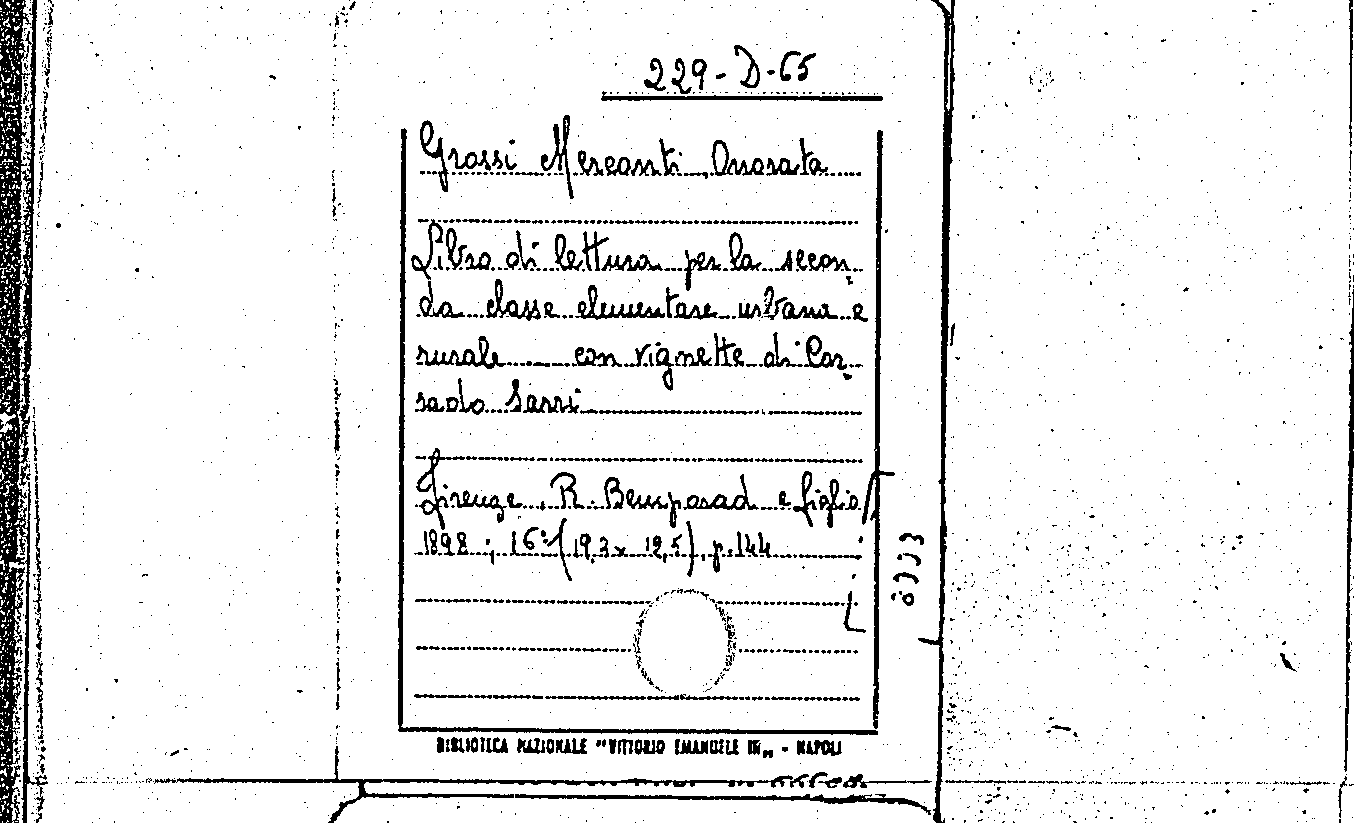 229-D-65
Grossi Mercanti Onorata
Libro di lettura per la secon-
da classe elementare urbana e
rurale con vignette di Cor-
rado Sarri
Firenze, R. Bemporad e figlio
1898 ; 16° (19,2x 12,5), p.144
BIBLIOTECA NAZIONALE "VITTORIO EMANUELE III" - NAPOLI